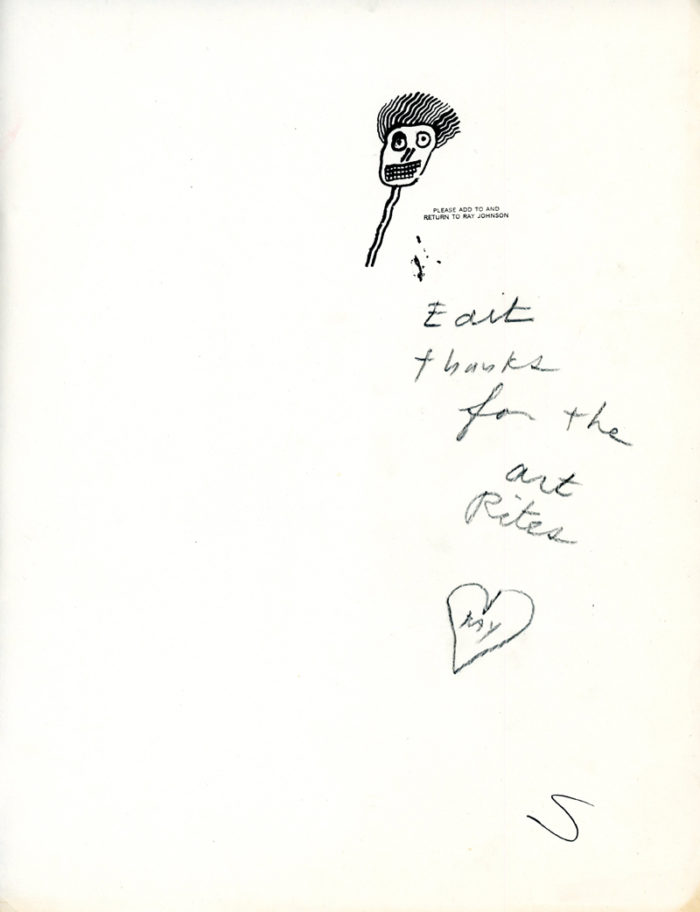 PLEASE ADD TO AND
RETURN TO RAY JOHNSON
Edit
thanks
for the
art
Rites
RAY
S